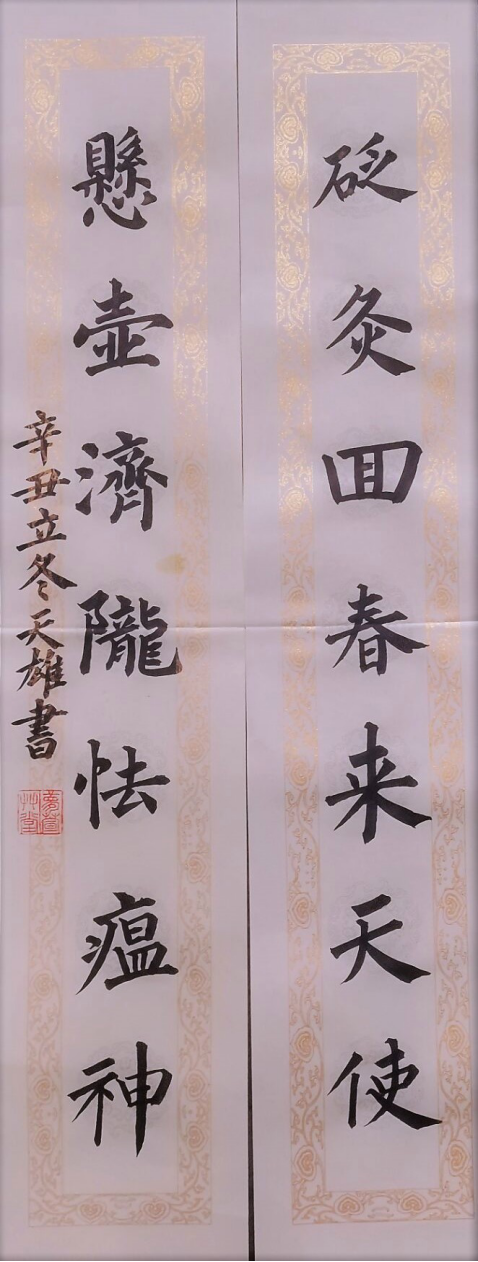 砭灸囬春来天使
懸壺濟隴怯瘟神
辛丑立冬天雄書